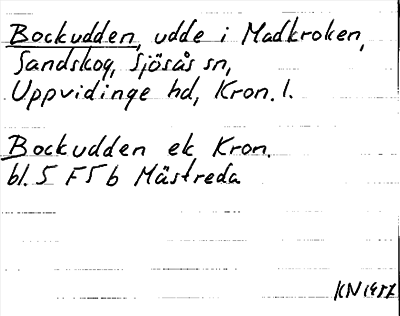 Bockudden, udde i Madkroken,
Sandskog, Sjösås sn,
Uppvidinge hd, Kron. l.
Bockudden ek Kron.
bl. 5 F 5 b Mästreda
KN 1957